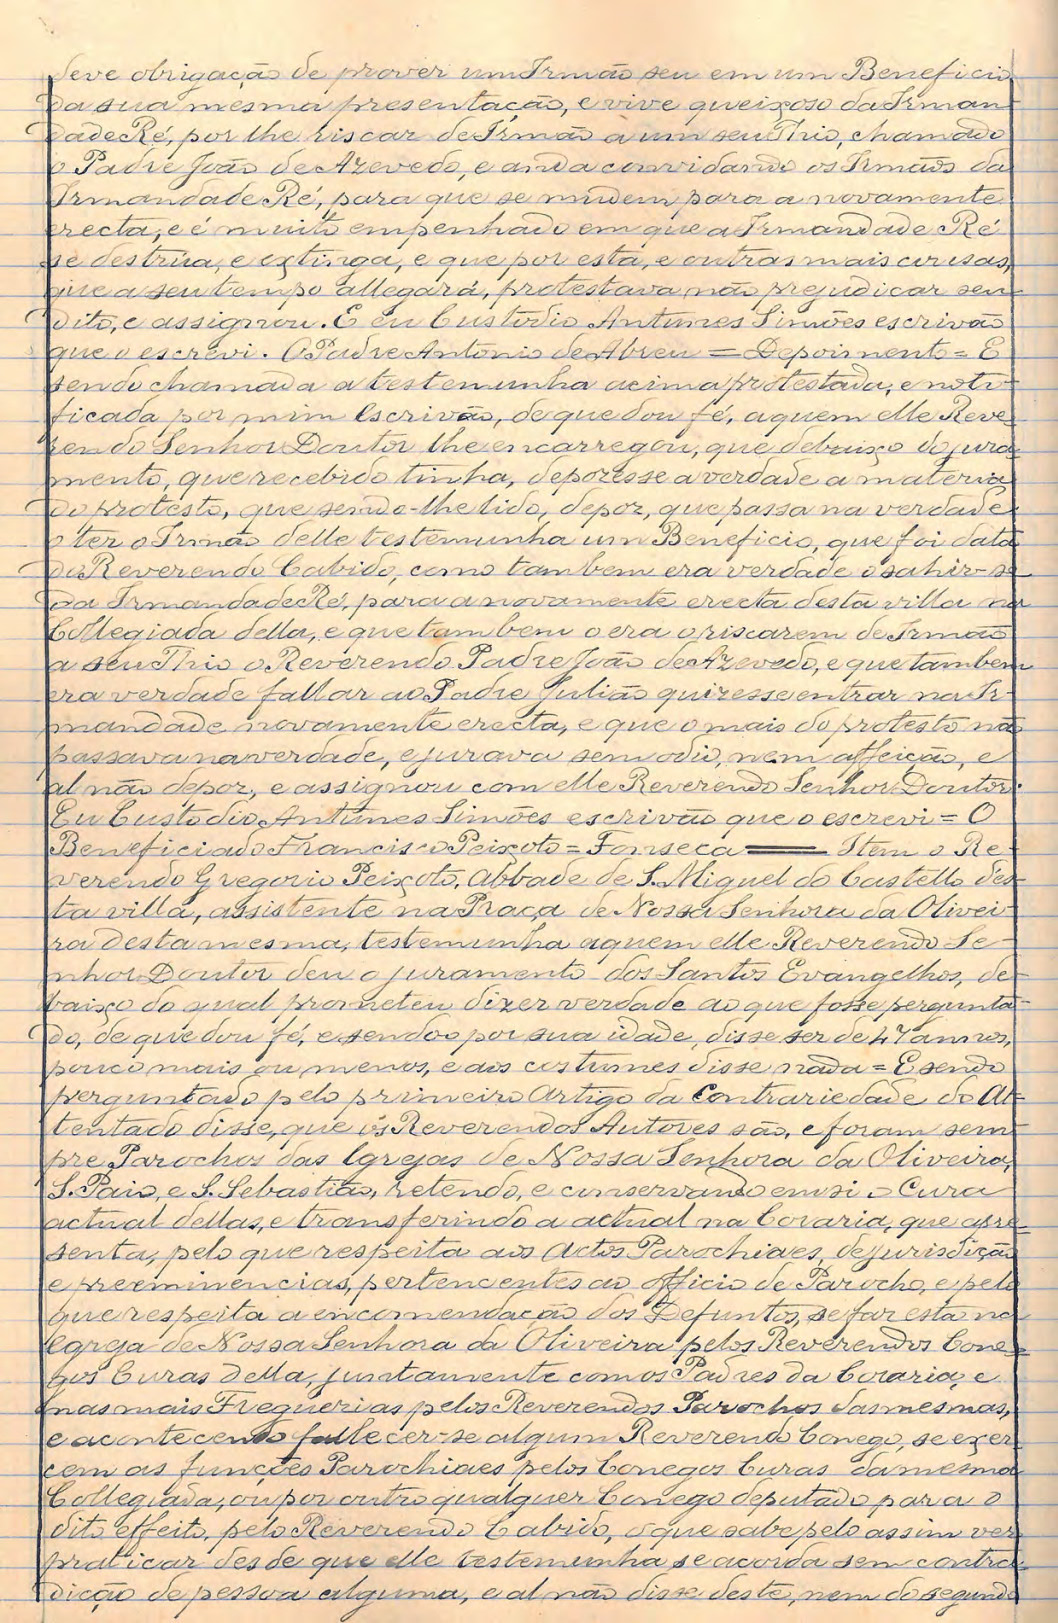 deve obrigação de prover um Irmão seu em um Beneficio
da sua mesma presentação, e vive queixoso da Irman-
dade Ré, por lhe riscar de Irmão a um seu Thio, chamado
o Padre João de Azevedo, e ainda convidando os Irmãos da
Irmandade Ré, para que se mudem para a novamente
erecta, e é muito empenhado em que a Irmandade Ré
se destrua, e extinga, e que por esta, e outras mais cousas,
que a seu tempo allegará, protestava não prejudicar seu
dito, e assignou. E eu Custodio Antunes Simões escrivão
que o escrevi. O Padre Antonio de Abreu = Depoimento = E
sendo chamada a testemunha acima protestada, e noti-
ficada por mim Escrivão, de que dou fé, a quem elle Reve-
rendo Senhor Doutor lhe encarregou, que debaixo do jura-
mento, que recebido tinha, depozesse a verdade a materia
do protesto, que sendo-lhe lido, depoz, que passa na verdade
o ter o Irmão delle testemunha um Beneficio, que foi data
do Reverendo Cabido, como tambem era verdade o sahir-se
da Irmandade Ré, para a novamente erecta desta villa na
Collegiada della, e que tambem o era o riscarem de Irmão
a seu Thio o Reverendo Padre João de Azevedo, e que tambem
era verdade fallar ao Padre Julião quizesse entrar na Ir-
mandade novamente erecta, e que o mais do protesto não
passava na verdade, e jurava sem odio, nem affeição, e
al não depoz, e assignou com elle Reverendo Senhor Doutor.
Eu Custodio Antunes Simões escrivão que o escrevi = O
Beneficiado Francisco Peixoto = Fonseca — Item o Re-
verendo Gregorio Peixoto, Abbade de S. Miguel do Castello des-
ta villa, assistente na Praça de Nossa Senhora da Olivei-
ra desta mesma, testemunha a quem elle Reverendo Se-
nhor Doutor deu o juramento dos Santos Evangelhos, de-
baixo do qual prometeu dizer verdade ao que fosse pergunta-
do, de que dou fé, e sendo-o por sua idade, disse ser de 47 annos,
pouco mais ou menos, e aos costumes disse nada = E sendo
perguntado pelo primeiro Artigo da Contrariedade do At-
tentado disse, que os Reverendos Autores são, e foram sem-
pre Parochos das Igrejas de Nossa Senhora da Oliveira,
S. Paio, e S. Sebastião, retendo, e conservando em si o Cura
actual dellas, e transferindo a actual na Coraria, que apre-
senta, pelo que respeita aos Actos Parochiaes, de jurisdição
e preeminencias, pertencentes ao officio de Parocho, e pelo
que respeita a encomendação dos Defuntos, se faz esta na
Egreja de Nossa Senhora da Oliveira pelos Reverendos Cone-
gos Curas della, juntamente com os Padres da Coraria, e
nas mais Freguezias pelos Reverendos Parochos das mesmas,
e acontecendo fallecer-se algum Reverendo Conego, se exer-
cem as funções Parochiaes pelos Conegos Curas da mesma
Collegiada, ou por outro qualquer Conego deputado para o
dito effeito, pelo Reverendo Cabido, o que sabe pelo assim ver
praticar desde que elle testemunha se acorda sem contra-
dição de pessoa alguma, e al não disse deste, nem do segundo